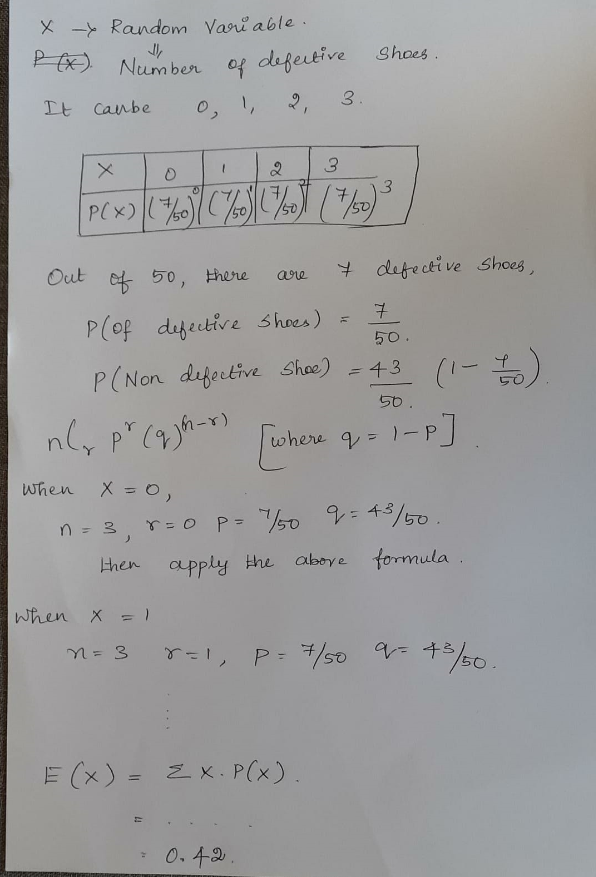 X → Random Variable.
P(x) ⇓ Number of defective Shoes.
It canbe 0, 1, 2, 3.
X 0 1 2 3
P(x) (7/50)⁰ (7/50)¹ (7/50)² (7/50)³
Out of 50, there are 7 defective Shoes,
P(of defective Shoes) = 7/50.
P(Non defective Shoe) = 43/50. (1 - 7/50).
nCr p^r (q)^(n-r) [where q = 1-P].
When X = 0,
n = 3, r = 0 P = 7/50 q = 43/50.
then apply the above formula.
When X = 1
n = 3 r = 1, P = 7/50 q = 43/50.
⋮
E(X) = Σ X. P(X).
= . . . . .
= 0.42.